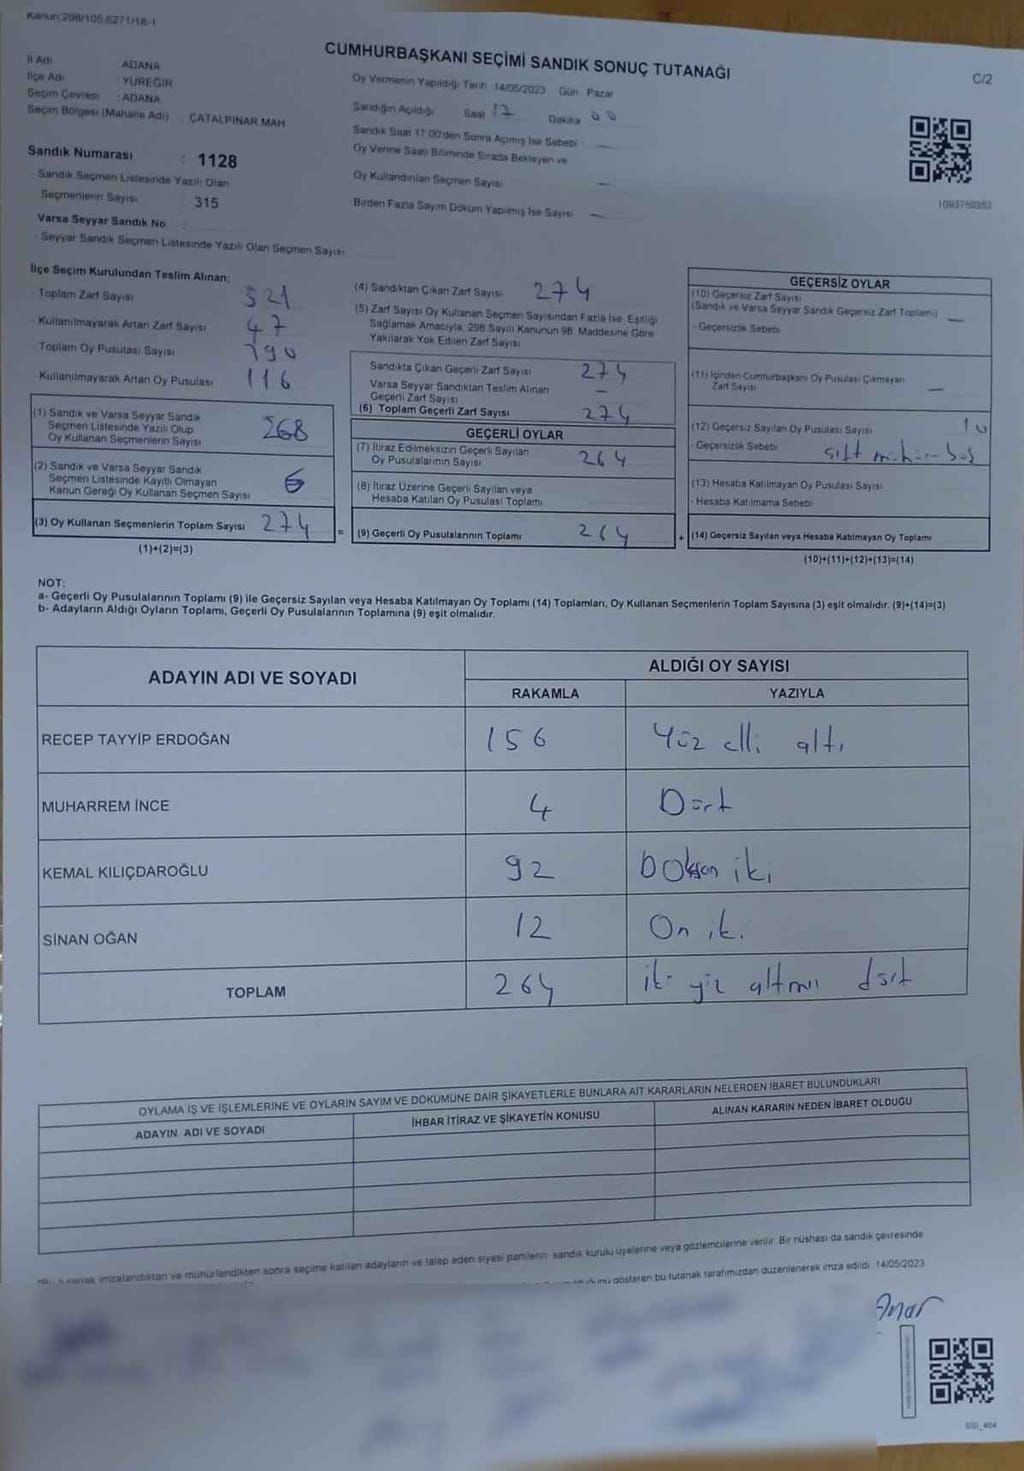 Kanun:298/105,6271/18-1
CUMHURBAŞKANI SEÇİMİ SANDIK SONUÇ TUTANAĞI
C/2
İl Adı : ADANA
İlçe Adı : YÜREĞİR
Seçim Çevresi : ADANA
Seçim Bölgesi (Mahalle Adı) ÇATALPINAR MAH.
Sandık Numarası : 1128
- Sandık Seçmen Listesinde Yazılı Olan
Seçmenlerin Sayısı 315
Varsa Seyyar Sandık No
- Seyyar Sandık Seçmen Listesinde Yazılı Olan Seçmen Sayısı
Oy Vermenin Yapıldığı Tarih 14/05/2023 Gün Pazar
Sandığın Açıldığı Saat 17 Dakika 00
Sandık Saat 17.00'den Sonra Açılmış İse Sebebi
Oy Verme Saati Bitiminde Sırada Bekleyen ve
Oy Kullandırılan Seçmen Sayısı —
Birden Fazla Sayım Döküm Yapılmış İse Sayısı —
1093750352
İlçe Seçim Kurulundan Teslim Alınan;
- Toplam Zarf Sayısı 321
- Kullanılmayarak Artan Zarf Sayısı 47
- Toplam Oy Pusulası Sayısı 390
- Kullanılmayarak Artan Oy Pusulası 116
(1) Sandık ve Varsa Seyyar Sandık
Seçmen Listesinde Yazılı Olup
Oy Kullanan Seçmenlerin Sayısı 268
(2) Sandık ve Varsa Seyyar Sandık
Seçmen Listesinde Kayıtlı Olmayan
Kanun Gereği Oy Kullanan Seçmen Sayısı 6
(3) Oy Kullanan Seçmenlerin Toplam Sayısı 274 =
(1)+(2)=(3)
(4) Sandıktan Çıkan Zarf Sayısı 274
(5) Zarf Sayısı Oy Kullanan Seçmen Sayısından Fazla İse, Eşitliği
Sağlamak Amacıyla, 298 Sayılı Kanunun 98. Maddesine Göre
Yakılarak Yok Edilen Zarf Sayısı
Sandıkta Çıkan Geçerli Zarf Sayısı 274
Varsa Seyyar Sandıktan Teslim Alınan
Geçerli Zarf Sayısı —
(6) Toplam Geçerli Zarf Sayısı 274
GEÇERLİ OYLAR
(7) İtiraz Edilmeksizin Geçerli Sayılan
Oy Pusulalarının Sayısı 264
(8) İtiraz Üzerine Geçerli Sayılan veya
Hesaba Katılan Oy Pusulası Toplamı
(9) Geçerli Oy Pusulalarının Toplamı 264 +
GEÇERSİZ OYLAR
(10) Geçersiz Zarf Sayısı
(Sandık ve Varsa Seyyar Sandık Geçersiz Zarf Toplamı) —
- Geçersizlik Sebebi
(11) İçinden Cumhurbaşkanı Oy Pusulası Çıkmayan
Zarf Sayısı —
(12) Geçersiz Sayılan Oy Pusulası Sayısı 10
- Geçersizlik Sebebi çift mühür
(13) Hesaba Katılmayan Oy Pusulası Sayısı
- Hesaba Katılmama Sebebi
(14) Geçersiz Sayılan veya Hesaba Katılmayan Oy Toplamı
(10)+(11)+(12)+(13)=(14)
NOT:
a- Geçerli Oy Pusulalarının Toplamı (9) ile Geçersiz Sayılan veya Hesaba Katılmayan Oy Toplamı (14) Toplamları, Oy Kullanan Seçmenlerin Toplam Sayısına (3) eşit olmalıdır. (9)+(14)=(3)
b- Adayların Aldığı Oyların Toplamı, Geçerli Oy Pusulalarının Toplamına (9) eşit olmalıdır.
ADAYIN ADI VE SOYADI ALDIĞI OY SAYISI
RAKAMLA YAZIYLA
RECEP TAYYİP ERDOĞAN 156 Yüz elli altı
MUHARREM İNCE 4 Dört
KEMAL KILIÇDAROĞLU 92 Doksan iki
SİNAN OĞAN 12 On iki
TOPLAM 264 iki yüz altmış dört
OYLAMA İŞ VE İŞLEMLERİNE VE OYLARIN SAYIM VE DÖKÜMÜNE DAİR ŞİKAYETLERLE BUNLARA AİT KARARLARIN NELERDEN İBARET BULUNDUKLARI
ADAYIN ADI VE SOYADI İHBAR İTİRAZ VE ŞİKAYETİN KONUSU ALINAN KARARIN NEDEN İBARET OLDUĞU
imzalandıktan ve mühürlendikten sonra seçime katılan adayların ve talep eden siyasi partilerin sandık kurulu üyelerine veya gözlemcilerine verilir. Bir nüshası da sandık çevresinde
gösteren bu tutanak tarafımızdan düzenlenerek imza edildi. 14/05/2023
SGI_404